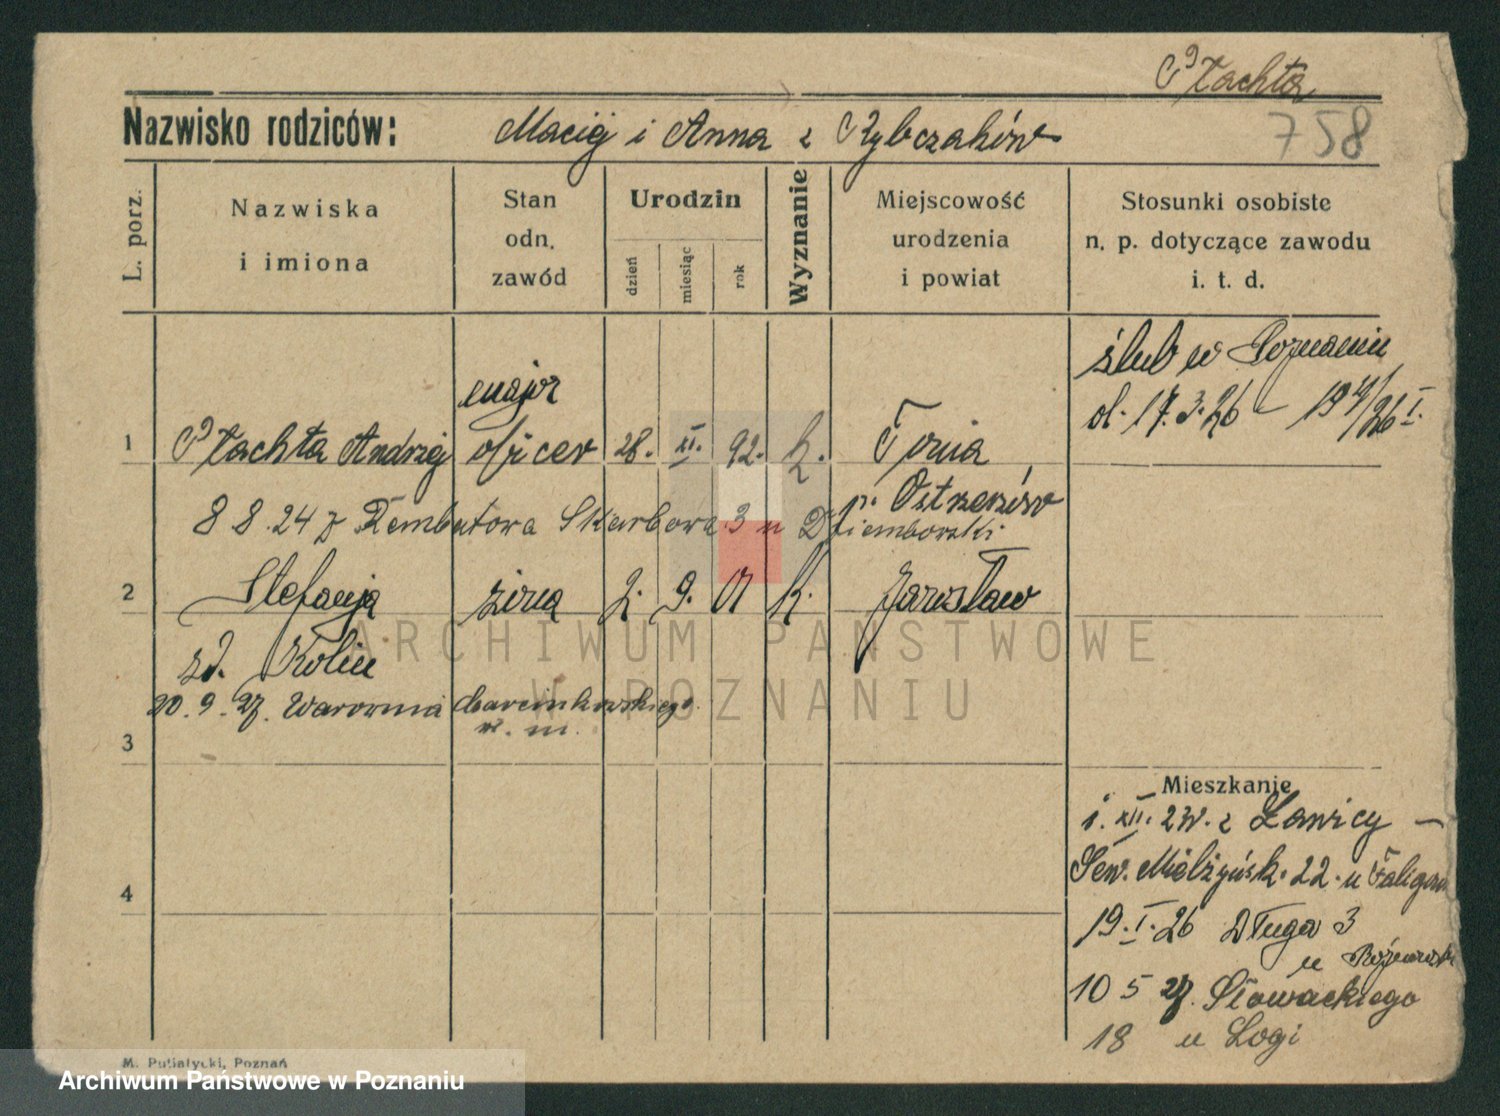 Płachta
Nazwisko rodziców: Maciej i Anna z Rybczaków
758
L. porz.
Nazwiska
i imiona
Stan
odn.
zawód
Urodzin
dzień
miesiąc
rok
Wyznanie
Miejscowość
urodzenia
i powiat
Stosunki osobiste
n. p. dotyczące zawodu
i. t. d.
ślub w Poznaniu
dl. 17.3.26 – 194/26 I.
major
1 Płachta Andrzej oficer 28. XI. 92. k. Toria
p. Ostrzeszów
8 8.24 z Skarbowa 3 u Dziemborski
2 Stefanja żona 2. 9. 01 k. Jarosław
zd. Kolin
20.9.27. Warownia Marcinkowskiego
w. m.
3
Mieszkanie
1. XII. 24. z Ławicy –
Sew. Mielżyńsk. 22. u
4
19.I.26 Długa 3
u
10 5 27. Słowackiego
18 u Logi
M. Putiatycki, Poznań
ARCHIWUM PAŃSTWOWE
W POZNANIU
Archiwum Państwowe w Poznaniu